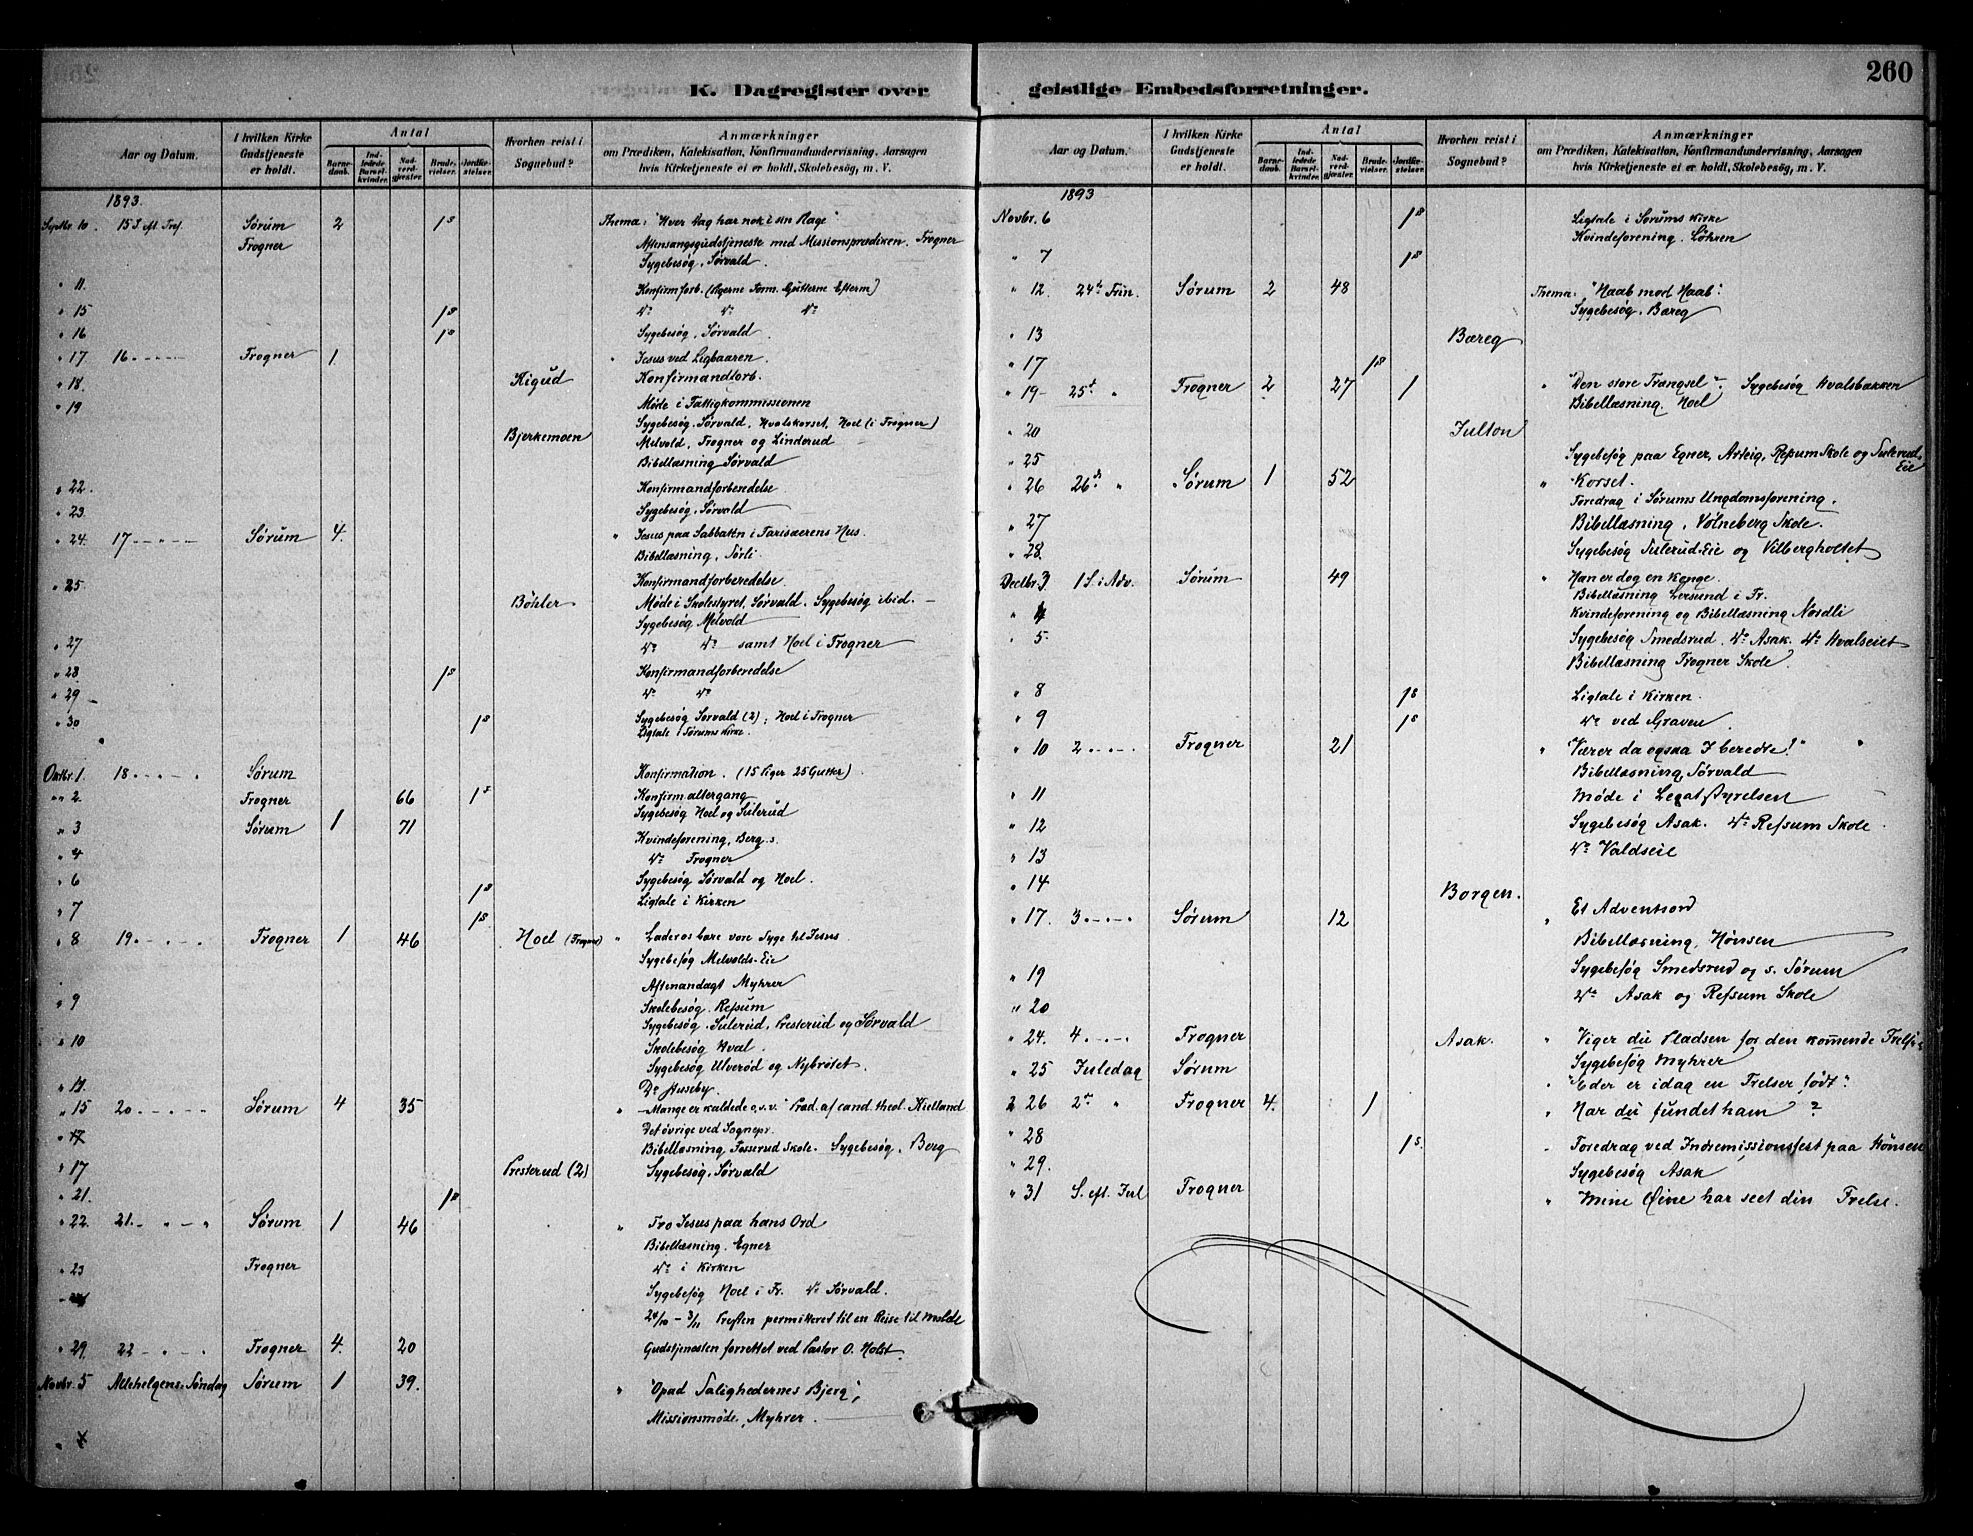 260
K. Dagregister over
Aar og Datum.
I hvilken Kirke Gudstjeneste er holdt.
Antal
Barnedaab.
Indledede Barselkvinder.
Nadverdgjæster.
Brudevielser.
Jordfæstelser.
Hvorhen reist i Sognebud?
Anmærkninger
om Prædiken, Katekisation, Konfirmandundervisning, Aarsagen
hvis Kirketjeneste ei er holdt, Skolebesøg, m. V.
1893.
Septbr 10. 15 S. eft. Tref. Sørum 2 1 s Thema: "Hver Dag har nok i sin Plage"
Frogner Aftensangsgudstjeneste med Missionsprædiken. Frogner
Sygebesøg, Sørvald.
" 11. Konfirmforb. (Pigerne Form. Gutterne Efterm)
" 15 1 s d° d° d°
" 16 1 s Sygebesøg, Sørvald
" 17 16 - - - - Frogner 1 " Jesus ved Ligbaaren.
" 18. Kigud Konfirmandforb.
" 19 Møde i Fattigkommissionen
Sygebesøg Sørvald, Hvalskorset, Noel (i Frogner)
Bjerkemoen Melvold, Frogner og Linderud
Bibellæsning Sørvald
" 22. Konfirmandforberedelse
" 23. Sygebesøg, Sørvald
" 24. 17 - - - - Sørum 4. " Jesus paa Sabbatn i Farisæerens Hus.
Bibellæsning, Sørli
" 25 Konfirmandforberedelse.
Böhler Møde i Skolestyret, Sørvald. Sygebesøg ibid. -
Sygebesøg Melvold
" 27 d° d° samt Noel i Frogner
" 28 1 s Konfirmandforberedelse
" 29 - d° d°
" 30 1 s Sygebesøg Sørvald (2); Noel i Frogner
Ligtale i Sørums Kirke.
Oktbr. 1. 18 - - - - Sørum Konfirmation. (15 Piger 25 Gutter)
" 2 Frogner 66 1 s Konfirmaltergang
Sygebesøg Noel og Sulerud
" 3 Sørum 1 71 Kvindeforening, Berg s.
" 4 d° Frogner
" 6 1 s Sygebesøg Sørvald og Noel.
Ligtale i Kirken
" 7 1 s
" 8 19 - - - - Frogner 1 46 Noel (Frogner) " Lader os bære vore Syge til Jesus
Sygebesøg Melvolds-Eie
Aftenandagt Myhrer
" 9 Skolebesøg. Refsum
Sygebesøg. Sulerud, Presterud og Sørvald
" 10 Skolebesøg Hval
Sygebesøg Ulverød og Nybrøtet
D° Husseby.
" 15 20 - - - - Sørum 4 35 " - Mange er kaldede o.s.v." Præd. af cand. theol. Kielland
Det øvrige ved Sognepr.
Bibellæsning Fosserud Skole. Sygebesøg. Berg
" 17 Presterud (2) Sygebesøg, Sørvald
" 21. 1 s
" 22. 21. - - - Sørum 1 46 " Tro Jesus paa hans Ord
Bibellæsning. Egner
" 23 Frogner d° i Kirken
Sygebesøg Noel i Fr. d° Sørvald.
24/10 - 3/11 Presten permitteret til en Reise til Molde
" 29. 22 - - - Frogner 4. 20 Gudstjenesten forrettet ved Pastor O. Holst.
Novbr. 5 Allehelgens. Søndag Sørum 1 39. " "Opad Salighedernes Bjerg",
Missionsmøde, Myhrer.
geistlige Embedsforretninger.
Aar og Datum.
I hvilken Kirke Gudstjeneste er holdt.
Antal
Barnedaab.
Indledede Barselkvinder.
Nadverdgjæster.
Brudevielser.
Jordfæstelser.
Hvorhen reist i Sognebud?
Anmærkninger
om Prædiken, Katekisation, Konfirmandundervisning, Aarsagen
hvis Kirketjeneste ei er holdt, Skolebesøg, m. V.
1893
Novbr. 6 1 s Ligtale i Sørums Kirke
Kvindeforening. Løhren
" 7 1 s
" 12. 24de Trin. Sørum 2 48 Thema: "Haab mod Haab".
Sygebesøg. Bæreg
" 13 Bæreg
" 17 1 s
" 19 - 25t " Frogner 2 27 1 " "Den store Trængsel". Sygebesøg Hvalsbakken
Bibellæsning. Noel
" 20 Julton
" 25 Sygebesøg paa Egner, Arteig, Refsum Skole og Sulerud-Eie
" 26 26de " Sørum 1 52 " Korset.
Foredrag i Sørums Ungdomsforening.
" 27 Bibellæsning, Vølneberg Skole.
" 28. Sygebesøg Sulerud-Eie og Vilbergholtet
Decbr. 3 1 S. i Adv. Sørum 49 " Han er dog en Konge.
Bibellæsning Lersund i Fr.
" 4 Kvindeforening og Bibellæsning Nordli
" 5. Sygebesøg Smedsrud. d° Asak. d° Hvalseiet
Bibellæsning Frogner Skole
" 8 1 s Ligtale i Kirken.
" 9 1 s d° ved Graven
" 10 2 - - - Frogner 21 " "Værer da ogsaa I beredte!" "
Bibellæsning, Sørvald
" 11 Møde i Legatstyrelsen
" 12 Sygebesøg Asak. d° Refsum Skole
" 13 d° Valdseie
" 14 Borgen.
" 17. 3 - - - Sørum 12 " Et Adventsord
Bibellæsning, Hønsen
" 19 Sygebesøg Smedsrud og s. Sørum
" 20 d° Asak og Refsum Skole
" 24. 4 - - - Frogner Asak. " Viger du Pladsen for den kommende Frelser
Sygebesøg Myhrer
" 25 Juledag Sørum " "Eder er idag en Frelser født".
" 26 2den " Frogner 4. 1 " Har du fundet ham?
" 28 1 s. - Foredrag ved Indremissionsfest paa Hønsen
" 29. Sygebesøg Asak
" 31 S. eft. Jul Frogner " Mine Øine har seet din Frelse.